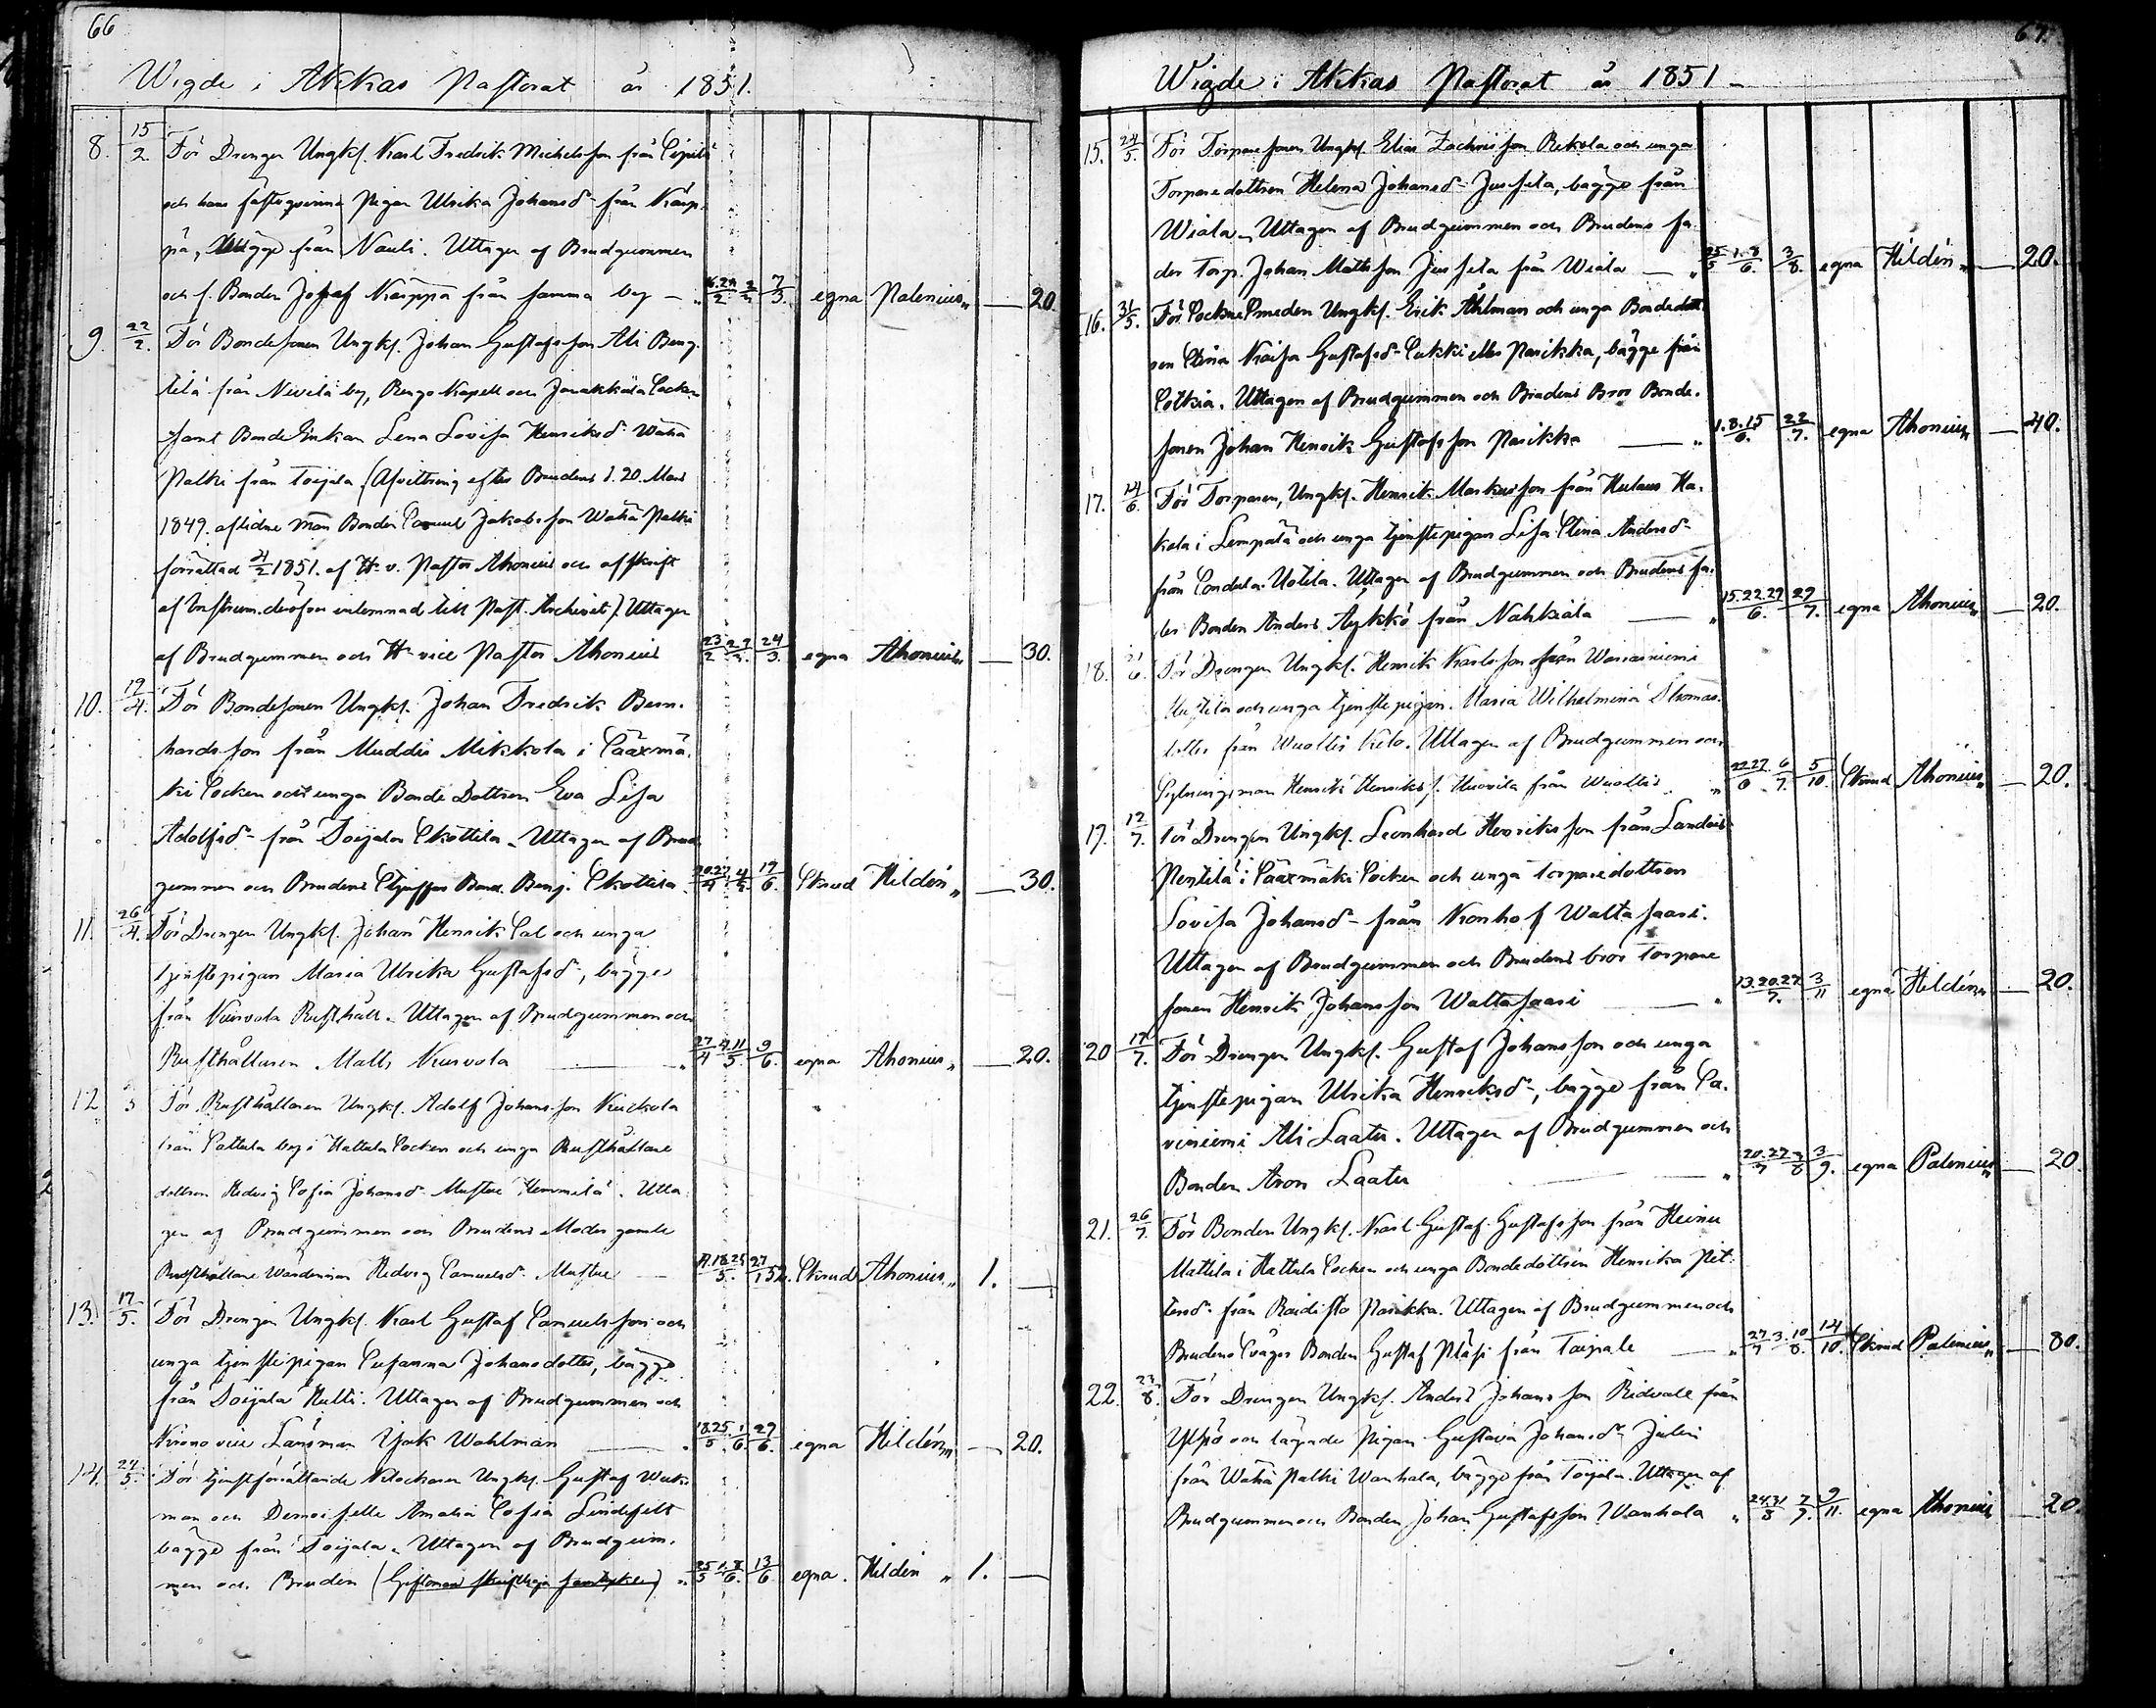 66
Wigde i Akkas Pastorat år 1851.
8. 15/2. För Drengen Ungkl. Karl Fredrik Michelsson från
och hans fästeqvinna Pigan Ulrika Johansd. från Kärp-
pä, bägge från Nauli. Uttagen af Brudgummen
och f. Bonden Josef Kärppä från samma by — 16.24/2 2/3 7/3. egna Palenius „ — 20.
9. 22/2. För Bondesonen Ungkl. Johan Gustafsson Ali Beng-
tilä från Nevilä by, Rengo Kapell och Janakkala Socken
samt Bonde Enkan Lena Lovisa Henriksd. Wähä
Palki från Toijala (Afvittring efter Brudens d. 20. Mars
1849. aflidne man Bonden Samuel Jakobsson Wähä Palki
förrättad 4/2 1851. af H. v. Pastor Ahonius och afskrift
af Instrum. deröfver inlemnad till Past. Archivet). Uttagen
af Brudgummen och H. vice Pastor Ahonius 24/3. egna Ahonius „ — 30.
10. 19/4. För Bondesonen Ungkl. Johan Fredrik Bern-
hardsson från Muddis Mikkola i Sääxmä-
ki Socken och unga Bonde Dottren Eva Lisa
Adolfsd. från Toijala Skottila. Uttagen af Brud
gummen och Brudens Styffar Bond. Benj. Skottila. 20.27/4. 4/5. 19/6. Skrud Hildén „ — 30.
11. 26/4. För Drengen Ungkl. Johan Henrik Sal och unga
tjenstepigan Maria Ulrika Gustafsd., bägge
från Kurvola Rusthåll. Uttagen af Brudgummen och
Rusthållaren Matts Kurvola — „ 27/4 4.11/5. 9/6. egna Ahonius „ — 20.
12. För Rusthållaren Ungkl. Adolf Johansson Kuckola
från Sattula by i Hattula Socken och unga Rusthållare
dottren Hedvig Sofia Johansd. Mustue Hemmilä. Utta
gen af Brudgummen och Brudens Moder gamle
Rusthållare Wärdinnan Hedvig Samuelsd. Mustue — 11.18.25/5. Skrud Ahonius „ 1. —
13. 17/5. För Drengen Ungkl. Karl Gustaf Samuelsson och
unga tjenstepigan Susanna Johansdotter, bägge
från Toijala Hutti. Uttagen af Brudgummen och
Krono vice Länsman Isak Wahlman — „ 18.25./5. 1/6. 29/6. egna Hildén „ — 20.
14. 24/5. För tjenstförrättande Klockaren Ungkl. Gustaf
man och Demoiselle Amalia Sofia Lindefelt
bägge från Toijala. Uttagen af Brudgum-
men och Bruden „ 25/5 1.8/6. 13/6 egna. Hildén „ 1. —
67.
Wigde i Akkas Pastorat år 1851 —
15. 24/5. För Torparesonen Ungkl. Elias Zachrisson Rekola och unga
Torparedottren Helena Johansd. Jussila, bägge från
Wiala. Uttagen af Brudgummen och Brudens fa-
der Torp. Johan Mattsson Jussila från Wiala — „ 25/5 1.8/6. 3/8. egna Hildén „ — 20.
16. 31/5. För Sockne Smeden Ungkl. Erik Åhlman och unga Bondedott
ren Stina Kaisa Gustafsd. Sukki eller Parikka, bägge från
Sotkia. Uttagen af Brudgummen och Brudens Bror Bonde-
sonen Johan Henrik Gustafsson Parikka — „ 1.8.15/6. 22/7. egna Ahonius „ — 40.
17. 14/6. För Torparen, Ungkl. Henrik Markusson från Hulaus Ha-
kola i Lempälä och unga tjenstepigan Lisa Stina Andersd.
från Sondula Uotila. Uttagen af Brudgummen och Brudens fa-
der Bonden Anders Äykkö från Nahkiala — „ 15.22.29/6. 29/7. egna Ahonius „ — 20.
18. 21/6. För Drengen Ungkl. Henrik Karlsson från
och unga tjenstepigan Maria Wilhelmina Thomas-
dotter från Wuoltis Kelo. Uttagen af Brudgummen och
Sytningsman Henrik Henrikss. Huovila från Wuoltis. „ 22.29./6 6/7. 5/10. Skrud Ahonius „ — 20.
19. 12/7. För Drengen Ungkl. Leonhard Henriksson från Landois
Pentilä i Sääxmäki Socken och unga torparedottren
Lovisa Johansd. från Konhof Waltasaari.
Uttagen af Brudgummen och Brudens bror torpare
sonen Henrik Johansson Waltasaari — „ 13.20.27/7. 3/11 egna Hildén „ — 20.
20 19/7. För Drengen Ungkl. Gustaf Johansson och unga
tjenstepigan Ulrika Henriksd., bägge från Sa-
viniemi Ali Laater. Uttagen af Brudgummen och
Bonden Aron Laater — „ 20.27/7 3/8 3/9. egna Palenius „ — 20.
21. 26/7. För Bonden Ungkl. Karl Gustaf Gustafsson från Heinu
Mattila i Hattula Socken och unga Bondedottren Henrika Pet-
tersd. från Raidisto Parikka. Uttagen af Brudgummen och
Brudens Svåger Bonden Gustaf Pläsi från Taipale — „ 27/7 3.10/8. 14/10. Skrud Palenius „ — 80.
22. 23/8. För Drengen Ungkl. Anders Johansson Ridvall från
Ylpö och lägrade Pigan Gustava Johansd. Julin
från Wähä Palki Wanhala, bägge från Toijala. Uttagen af
Brudgummen och Bonden Johan Gustafsson Wanhala „ 24.31/8 7/9. 9/11. egna Ahonius — 20.